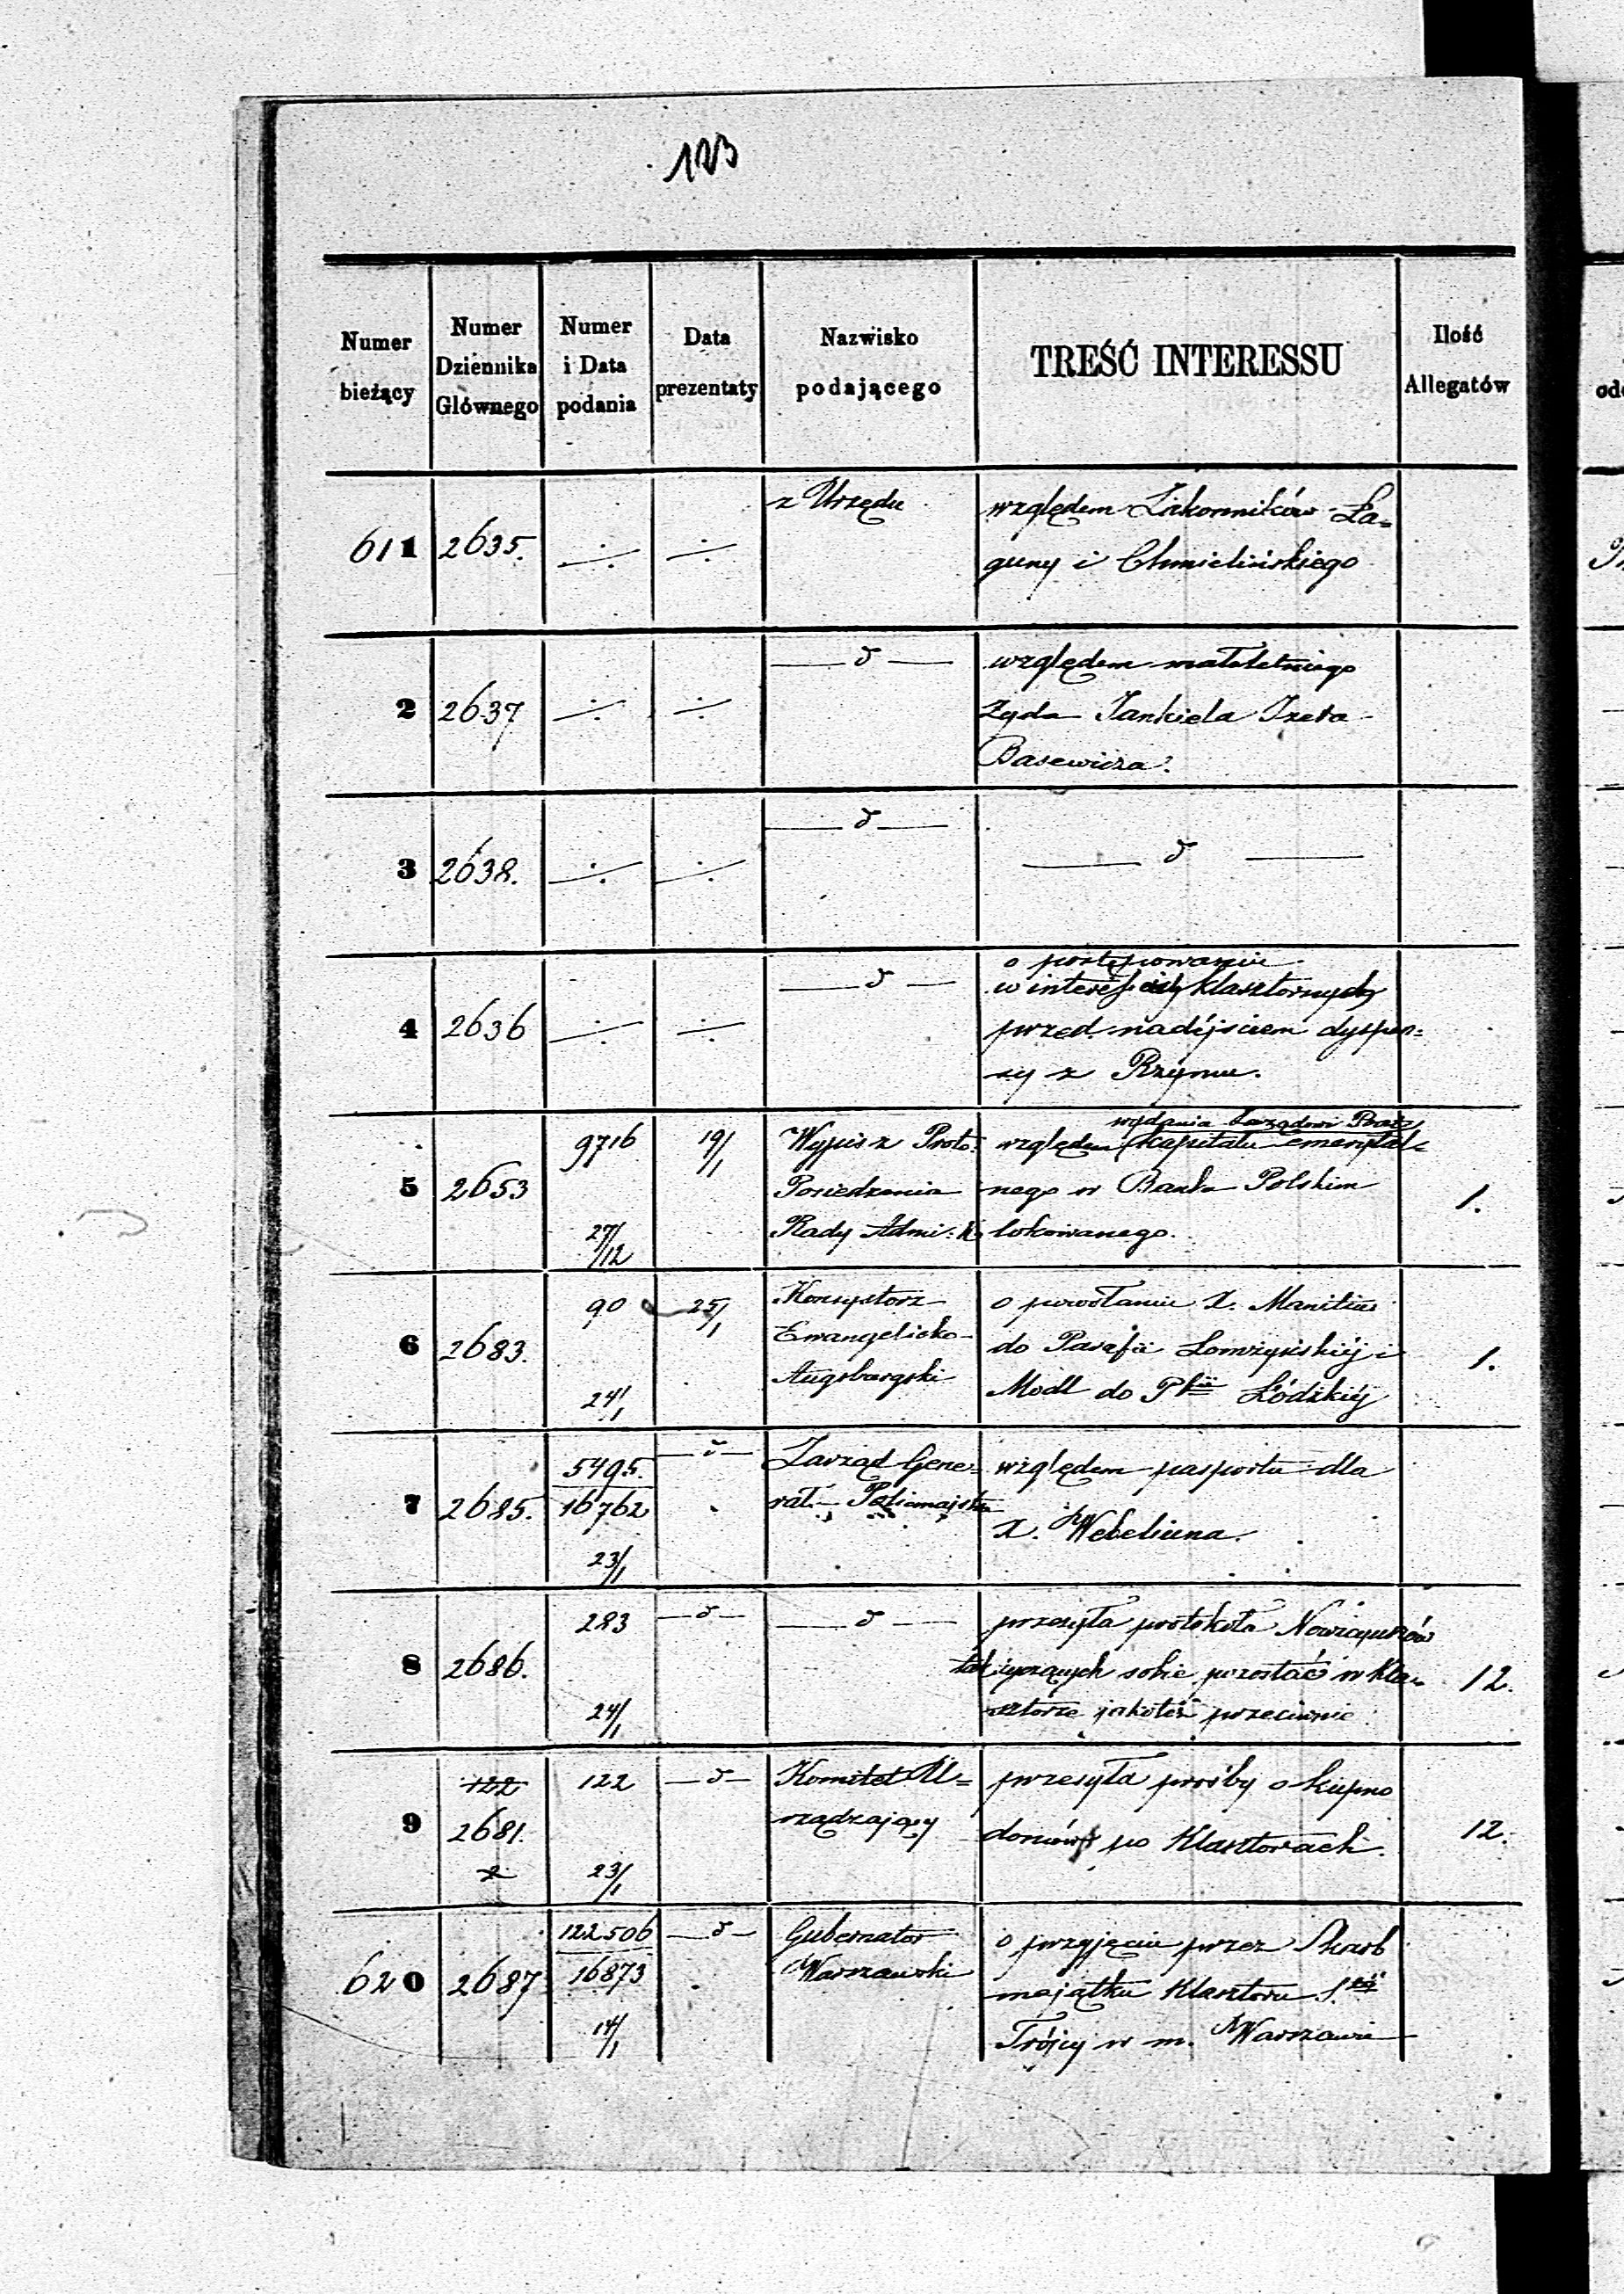 123
Numer bieżący
Numer Dziennika Głównego
Numer i Data podania
Data prezentaty
Nazwisko podającego
TREŚĆ INTERESSU
Ilość Allegatów
611 2635. ÷ ÷ z Urzędu
względem Zakonników Ła=
guny i Chmielińskiego
2 2637 ÷ ÷ — d —
względem małoletniego
Żyda Jankiela
Basewicza.
3 2638. ÷ ÷ — d —
— d —
4 2636 ÷ ÷ — d —
o postępowaniu
w interessach klasztornych
przed nadejściem dyspen=
sy z Rzymu.
5 2653
9716
27/12
19/1
Wypis z Proto:
Posiedzenia
Rady Admi:
wydania Zarządowi
względem kapitału emerytal=
nego w Banku Polskim
lokowanego.
1.
6 2683.
90
24/1
25/1
Konsystorz
Ewangelicko-
Augsburgski
o powołaniu X. Manitius
do Parafii Łomżyńskiéj i
Modl do Pfii Łódzkiéj
1.
7 2685.
5495.
16762
23/1
— d —
Zarząd Gene=
rał-Policmajstra
względem pasportu dla
X.
8 2686.
283
24/1
— d —
— d —
przesyła protokoła Nowicyuszów
tak życzących sobie pozostać w Kla=
sztorze jakoteż przeciwnie
12.
9
122
2681.
2
122
23/1
— d —
Komitet U=
rządzający
przesyła prośby o kupno
domów po Klasztorach.
12.
620 2687
122506
16873
14/1
— d —
Gubernator
Warszawski
o przyjęciu przez Skarb
majątku Klasztoru S.téj
Trójcy w m. Warszawie